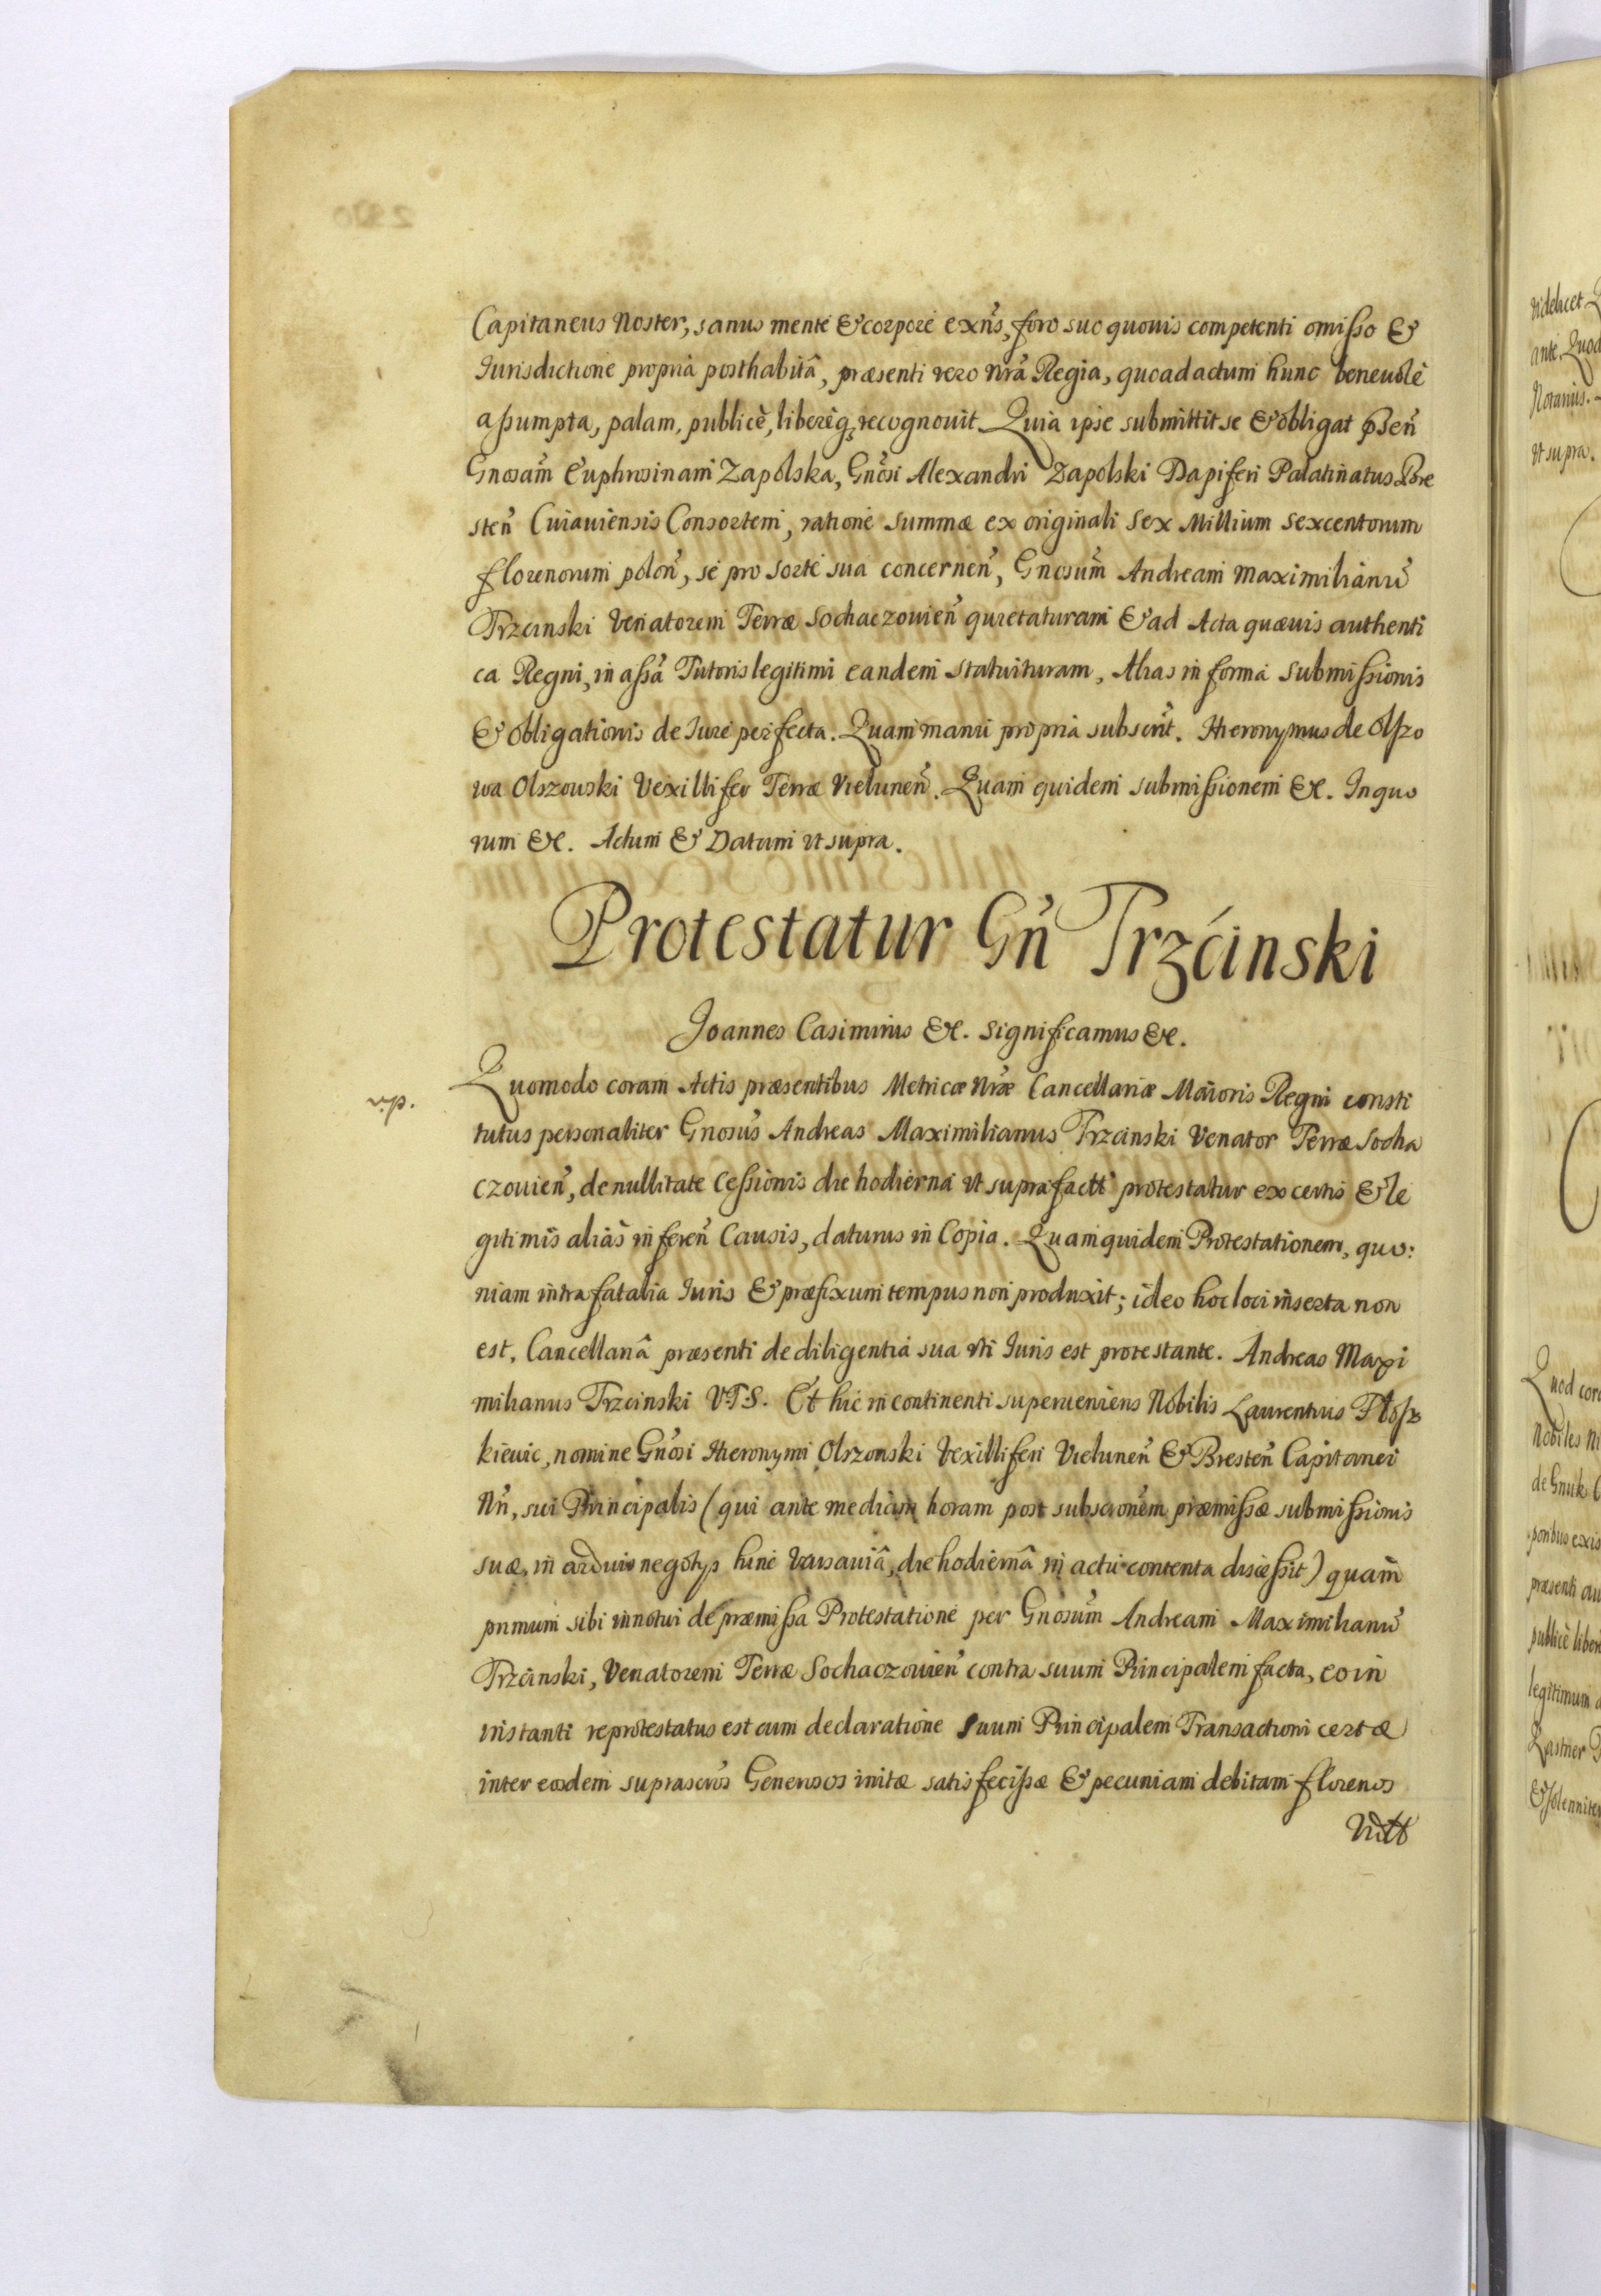 Capitaneus Noster, sanus mente & corpore exñs, foro suo quovis competenti omisso &
Iurisdictione propria posthabitâ, præsenti vero nr̃a Regia, quoad actum hunc benevolè
assumpta, palam, publicè, libereq; recognovit. Quia ipse submittit se & obligat
Gnosam̃ Euphrosinam Zapolska, Gnosi Alexandri Zapolski Dapiferi Palatinatus Bre
steñ Cuiaviensis Consortem, ratione summæ ex originali Sex Millium Sexcentorum
florenorum poloñ, se pro sorte sua concerneñ, Gnosum̃ Andream Maximilianũ
Trzcinski Venatorem Terræ Sochaczovieñ quietaturam & ad Acta quævis authenti
ca Regni, in assã Tutoris legitimi eandem statuituram, Alias in forma submissionis
& obligationis de Iure perfecta. Quam manu propria subscrit. Hieronymus de Olszo
wa Olszowski Vexillifer Terræ Vieluneñ. Quam quidem submissionem &c. In quo
rum &c. Actum & Datum ut supra.
Protestatur Gñ Trzćinski
Joannes Casimirus &c. Significamus &c.
Quomodo coram Actis præsentibus Metricæ Nr̃æ Cancellariæ Maioris Regni consti
tutus personaliter Gnosus Andreas Maximilianus Trzcinski Venator Terræ Socha
czovieñ, de nullitate Cessionis die hodierna ut supra factæ protestatur ex certis & le
gitimis aliàs infereñ Causis, daturus in Copia. Quam quidem Protestationem, quo:
niam intra fatalia Iuris & præfixum tempus non produxit; ideo hoc loci inserta non
est, Cancellariâ præsenti de diligentia sua uti Iuris est protestante. Andreas Maxi
milianus Trzcinski V.T.S. Et hic in continenti superveniens Nobilis Laurentius
kievic, nomine Gnosi Hieronymi Olszowski Vexilliferi Vieluneñ & Bresteñ Capitanei
Nñ, sui Principalis (qui ante mediam horam post subscrionem præmissæ submissionis
suæ, in arduis negotys hinc Varsaviâ, die hodiernâ in actu contenta discessit) quam̃
primum sibi innotui de præmissa Protestatione per Gnosum̃ Andream Maximilianũ
Trzcinski, Venatorem Terræ Sochaczovieñ contra suum Principalem facta, eo in
instanti reprotestatus est cum declaratione Suum Principalem Transactioni certæ
inter eosdem suprascros Generosos initæ satisfecisse & pecuniam debitam florenos